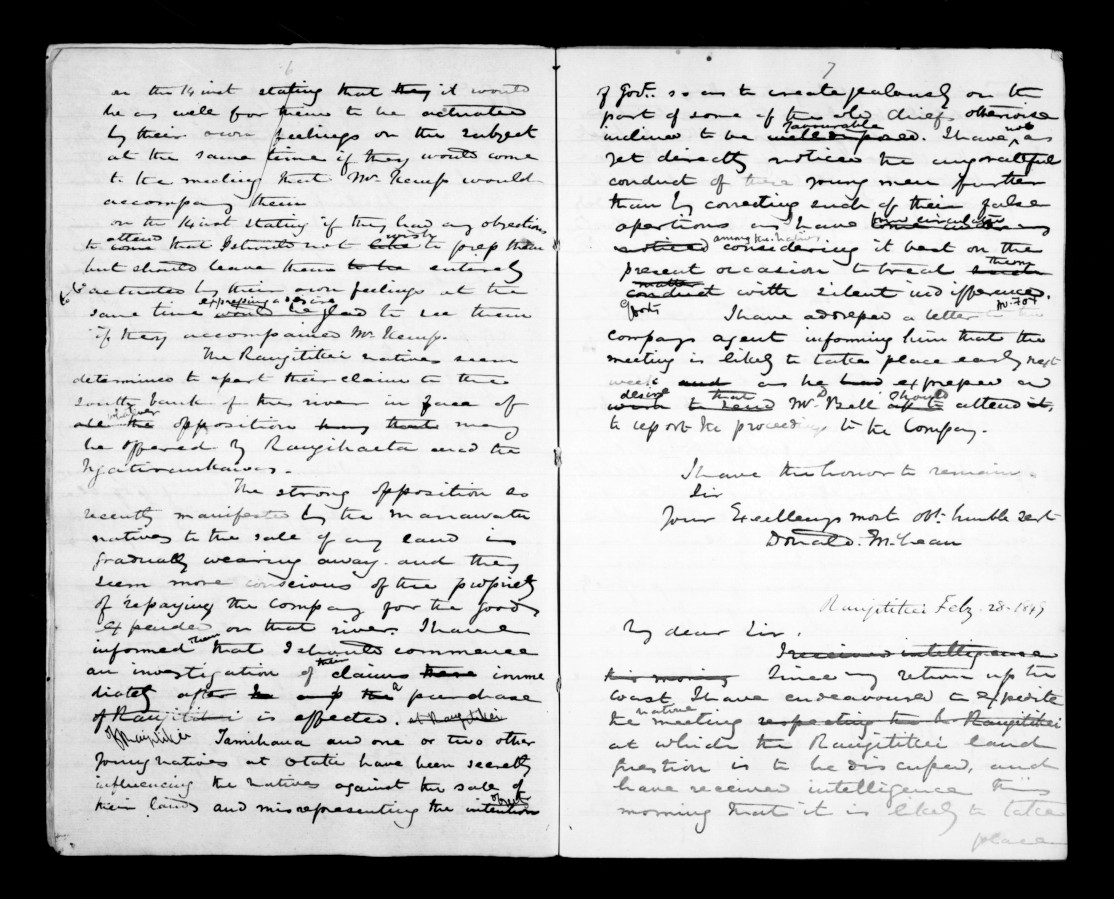 6
on the 14 inst stating that they it would
be as well for them to be actuated
by their own feelings on the subject
at the same time if they would come
to the meeting that Mr Kemp would
accompany them
on the 14 inst stating if they had any objections
to come attend that I should not like wish to press them
but should leave them to be entirely
to be actuated by their own feelings at the
same time would be glad expressing a desire to see them
if they accompanied Mr Kemp.
The Rangitikei natives seem
determined to assert their claim to the
south bank of the river in face of
all the whatever opposition may
be offered by Rangihaeta and the
Ngatiraukawas.
The strong opposition so
recently manifested by the Manawatu
natives to the sale of any land is
gradually wearing away. and they
seem more conscious of the propriety
of repaying the Company for the goods
expended on that river. I have
informed them that I should commence
an investigation of their claims there imme
diately after the purchase
of Rangitikei is effected. at Rangitikei
of Rangitikei Tamihana and one or two other
young natives at Otaki have been secretly
influencing the natives against the sale of
their lands and misrepresenting the intention objects
7
of Govt. so as to create jealously on the
part of some of the old chiefs otherwise
inclined to be well disposed favourable. I have not as
yet directly noticed the ungrateful
conduct of these young men further
than by correcting such of their false
assertions as I have
noticed among the natives considering it best on the
present occasion to treat such them
matter
conduct with silent indifference.
I have addressed a letter to the Mr. Fox
Companys agent informing him that the
meeting is likely to take place early next
week and as he had expressed a
desire wish to send that Mr. D Bell should attend it,
to report the proceedings to the Company.
I have the honor to remain.
Sir
Your Excellencys most obt. humble Sert
Donald. McLean
Rangitikei Feby. 28. 1849
My dear Sir,
I received intelligence
this morning Since my return up the
coast I have endeavoured to expedite
the native meeting respecting the Rangitikei
at which the Rangitikei land
question is to be discussed, and
have received intelligence this
morning that it is likely to take
place